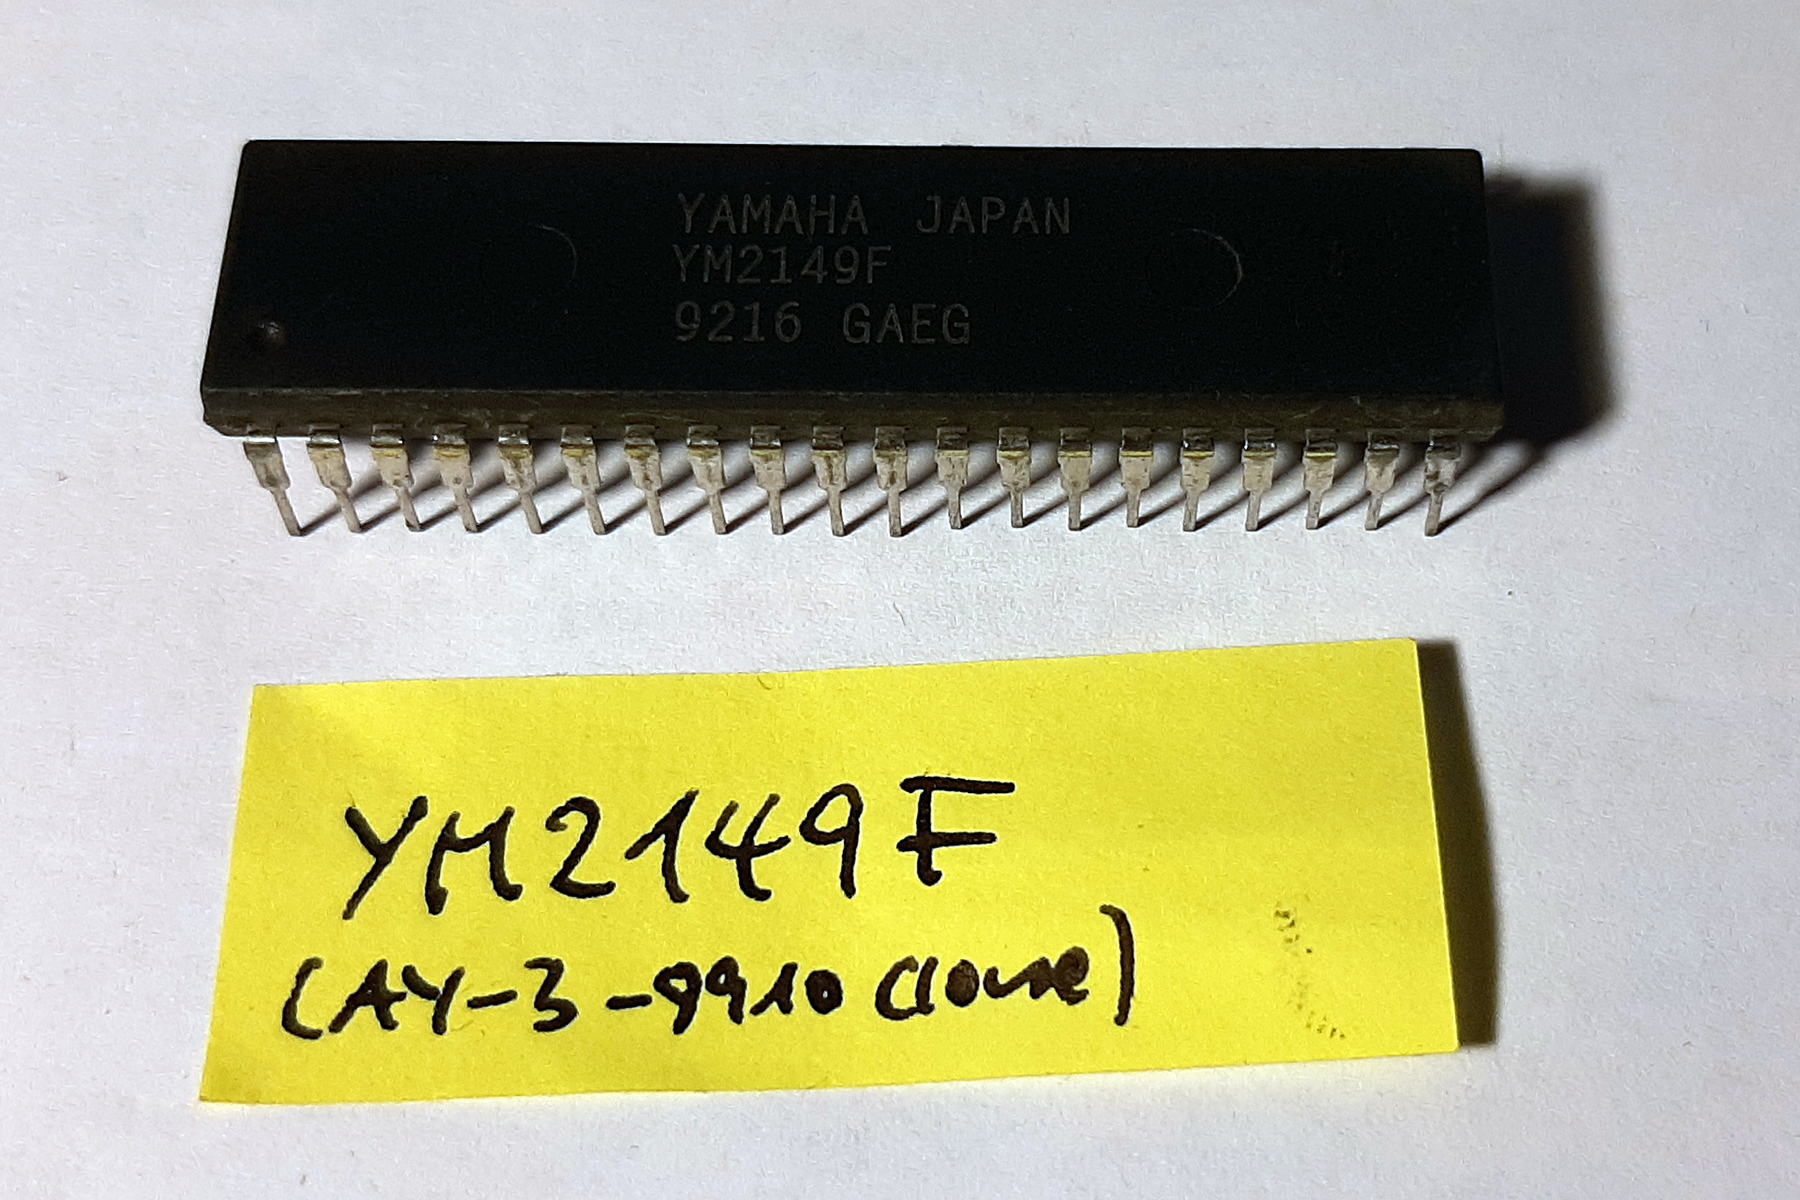 YAMAHA JAPAN
YM2149F
9216 GAEG
YM2149F
(AY-3-9910 clone)